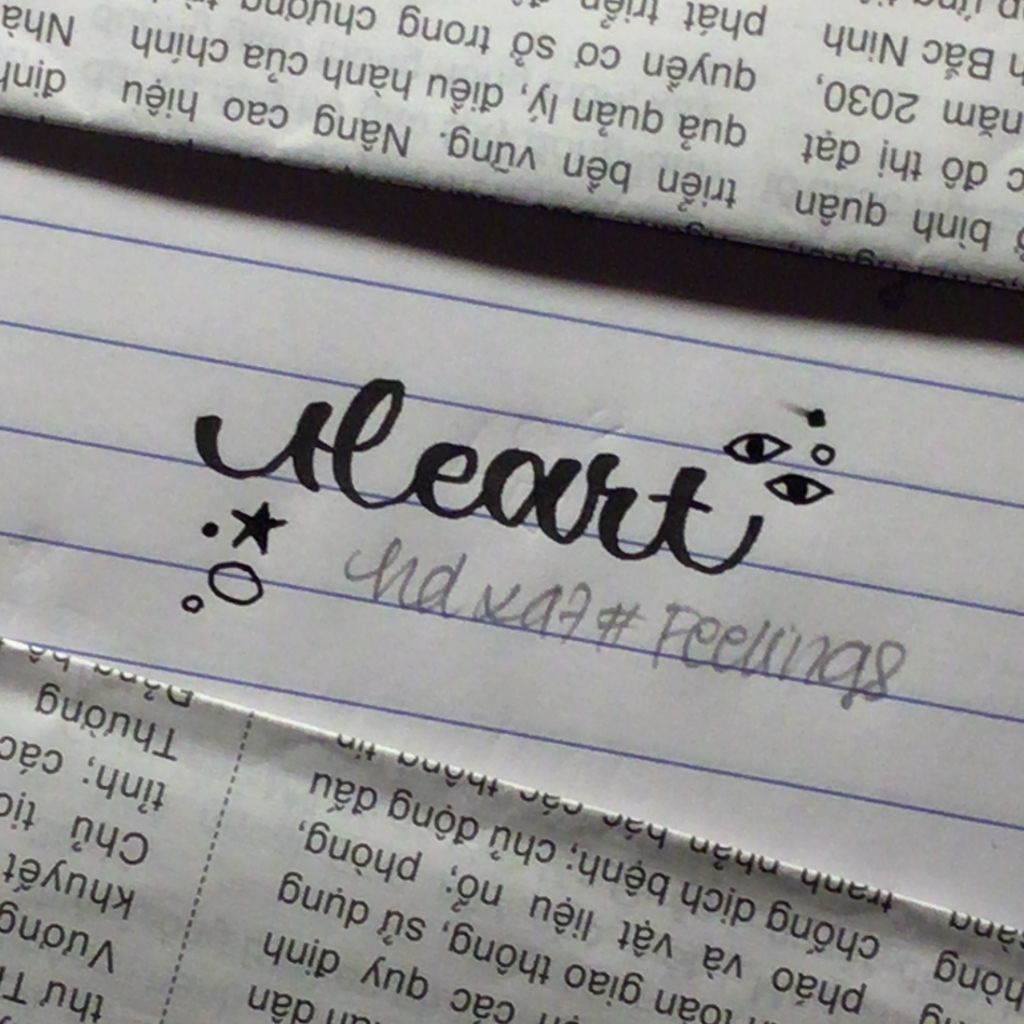 Heart
#Feelings
bình quân
đô thị đạt
năm 2030,
Bắc Ninh
triển bền vững. Nâng cao hiệu
quả quản lý, điều hành của chính
quyền cơ sở trong chương
phát triển
định
Nhà
các quy định
toàn giao thông, sử dụng
pháo và vật liệu nổ; phòng,
chống dịch bệnh; chủ động đấu
tranh các thông tin
thư
Vương
khuyết
Chủ
tỉnh; các
Thường
Đảng bộ